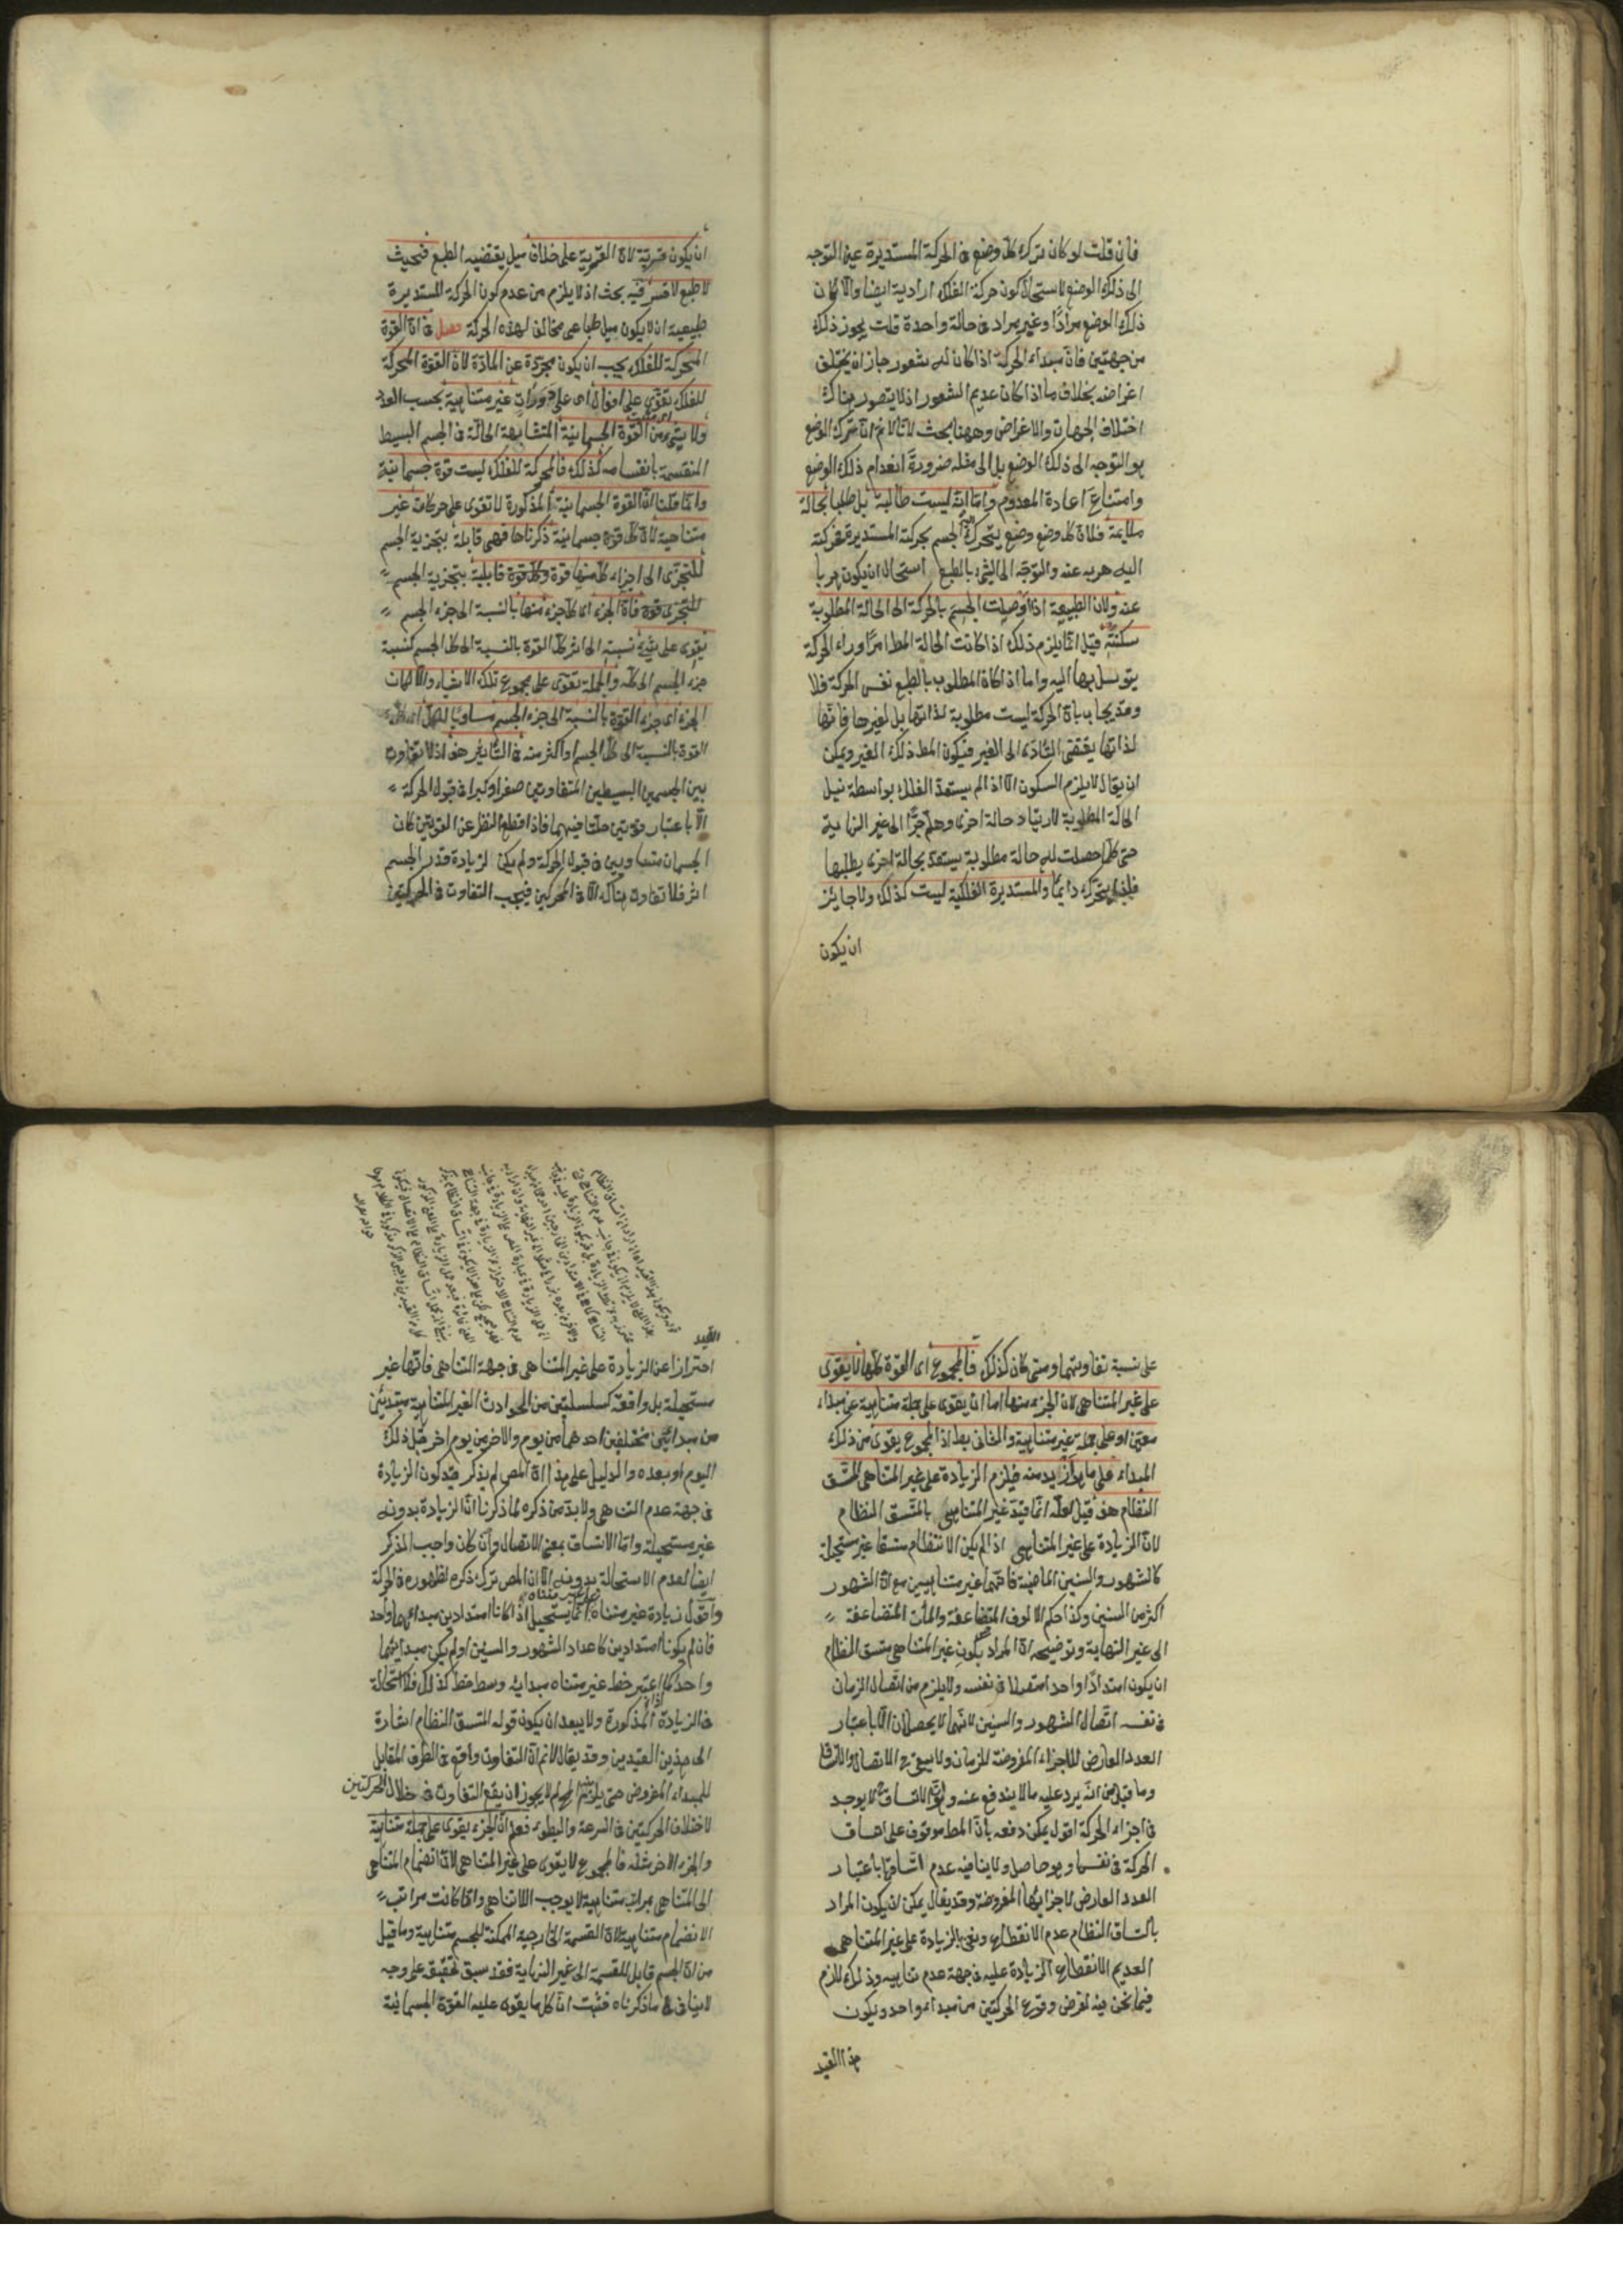 فان قلت لو كان ترك كل وضع فى الحركة المستديرة عين التوجه
الى ذلك الوضع لاستحال كون حركة الفلك ارادية ايضا والا لكان
ذلك الوضع مرادًا وغير مراد فى حالة واحدة قلت يجوز ذلك
من جهتين فان مبداء الحركة اذا كان له شعور جاز ان يختلف
اغراضه بخلاف ما اذا كان عديم الشعور اذ لا يتصور هناك
اختلاف الجهات والاغراض وههنا بحث لانا لا نم ان ترك الوضع
هو التوجه الى ذلك الوضع بل الى مثله ضرورة انعدام ذلك الوضع
وامتناع اعادة المعدوم واما انه ليست طالبة بل طلبا لحالة
ملايمة فلان كل وضع وضع يتحرك اليه الجسم بحركته المستديرة فحركته
اليه هربه عنه والتوجه الى الشئ بالطبع استحال ان يكون هربا
عنه ولان الطبيعة اذا اوصلت الجسم بالحركة الى الحالة المطلوبة
سكنته قيل انما يلزم ذلك اذا كانت الحالة المط امرا وراء الحركة
يتوسل بها اليه واما اذا كان المطلوب بالطبع نفس الحركة فلا
وقد يجاب بان الحركة ليست مطلوبة لذاتها بل لغيرها فانها
لذاتها يقتضى التادى الى الغير فيكون المط ذلك الغير ويمكن
ان يقال لا يلزم السكون الا اذا لم يستعد الفلك بواسطة نيل
الحالة المطلوبة لارتياد حالة اخرى وهلم جرًّا الى غير النهاية
حتى كلما حصلت له حالة مطلوبة يستعد بحالة اخرى يطلبها
فلهذا يتحرك دايمًا والمستديرة الفلكية ليست كذلك ولا جايز
ان يكون
ان يكون قسرية لان القسرية على خلاف ميل يقتضيه الطبع فحيث
لا طبع لا قسر فيه بحث اذ لا يلزم من عدم كون الحركة المستديرة
طبيعية ان لا يكون ميل طباعى مخالف لهذه الحركة فصل فى ان القوة
المحركة للفلك يجب ان يكون مجردة عن المادة لان القوة المحركة
للفلك تقوى على افعال اى على دورات غير متناهية بحسب العدد
ولا شئ من القوة الجسمانية المتشابهة الحالّة فى الجسم البسيط
المنقسمة بانقسامه كذلك فالمحركة للفلك ليست قوة جسمانية
وانما قلنا ان القوة الجسمانية المذكورة لا تقوى على حركات غير
متناهية لان كل قوة جسمانية ذكرناها فهى قابلة بتجزية الجسم
للتجزى الى اجزاء كل منها قوة وكل قوة قابلية بتجزية الجسم
للتجزى قوة فان الجزء اى كل جزء منها بالنسبة الى جزء الجسم
يقوى على شئ نسبته الى اثر كل القوة بالنسبة الى كل الجسم كنسبة
جزء الجسم الى كله والجملة تقوى على مجموع تلك الاشياء والا لكان
الجزء اى جزء القوة بالنسبة الى جزء الجسم مساويًا للكل اى كل
القوة بالنسبة الى كل الجسم او اكثر منه فى التاثير هف اذ لا تفاوت
بين الجسمين البسيطين المتفاوتين صغرا وكبرا فى قبول الحركة
الا باعتبار قوتين حلتا فيهما فاذا اقطع النظر عن القوتين كان
الجسمان متساويين فى قبول الحركة ولم يكن لزيادة قدر الجسم
اثر فلا تفاوت هناك الا فى المحركين فيجب التفاوت فى الحركتين
على نسبة تفاوتهما ومتى كان كذلك فالمجموع اى القوة كلها لا يقوى
على غير المتناهى لان الجزء منها اما ان يقوى على جملة متناهية من مبداء
معين او على جملة غير متناهية والثانى بط اذ المجموع يقوى من ذلك
المبداء على ما هو ازيد منه فيلزم الزيادة على غير المتناهى المتسق
النظام هف قيل لعله انما قيد غير المتناهى بالمتسق النظام
لان الزيادة على غير المتناهى اذ لم يكن الانتظام متسقا غير مستحيلة
كالشهور والسنين الماضية فانهما غير متناهيين مع ان الشهور
اكثر من السنين وكذا حكم الالوف المتضاعفة والمآت المتضاعفة
الى غير النهاية وتوضيحه ان المراد بكون غير المتناهى متسق النظام
ان يكون امتدادًا واحدا متصلا فى نفسه ولا يلزم من اتصال الزمان
فى نفسه اتصال الشهور والسنين لانهما لا يحصلان الا باعتبار
العدد العارض للاجزاء المفروضة للزمان ولا يبقى ح الاتصال والاتساق
وما قيل من انه يرد عليه ما لا يندفع عنه وهو ان الاتساق لا يوجد
فى اجزاء الحركة اقول يمكن دفعه بان المط موقوف على اتساق
الحركة فى نفسها وهو حاصل ولا ينافيه عدم اتساقها باعتبار
العدد العارض لاجزائها المفروضة وقد يقال يمكن ان يكون المراد
باتساق النظام عدم الانقطاع ونعنى بالزيادة على غير المتناهى
العديم الانقطاع الزيادة عليه فى جهة عدم تناهيه وذلك لازم
فيما نحن فيه لفرض وقوع الحركتين من مبداء واحد ويكون
هذا القيد
القيد
احترازا عن الزيادة على غير المتناهى فى جهة التناهى فانها غير
مستحيلة بل واقعة كسلسلتين من الحوادث الغير المتناهية مبتدئتين
من مبدائين مختلفين احدهما من يوم والاخر من يوم اخر قبل ذلك
اليوم او بعده والدليل على هذا ان المص لم يذكر قيد كون الزيادة
فى جهة عدم التناهى ولا بد من ذكره لما ذكرنا ان الزيادة بدونه
غير مستحيلة واما الاتساق بمعنى الاتصال وان كان واجب الذكر
ايضا لعدم الاستحالة بدونه الا ان المص ترك ذكره لظهوره فى الحركة
واقول زيادة غير متناه على غير متناه انما يستحيل اذا كانا امتدادين مبدائهما واحد
فان لم يكونا امتدادين كاعداد الشهور والسنين او لم يكن مبدائهما
واحدا كما اذا اعتبر خط غير متناه مبدائه وسط خط كذلك فلا استحالة
فى الزيادة المذكورة ولا يبعد ان يكون قوله المتسق النظام اشارة
الى هذين القيدين وقد يقال لا نم ان التفاوت واقع فى الطرف المقابل
للمبداء المفروض حتى يلزم المح لم لا يجوز ان يقع التفاوت فى خلال الحركتين
لاختلاف الحركتين فى السرعة والبطوء فعلم ان الجزء يقوى على جملة متناهية
والجزء الاخر مثله فالمجموع لا يقوى على غير المتناهى لان انضمام المتناهى
الى المتناهى بمرات متناهية لا يوجب اللاتناهى وانما كانت مراتب
الانضمام متناهية لان القسمة الخارجية الممكنة للجسم متناهية وما قيل
من ان الجسم قابل للقسمة الى غير النهاية فقد سبق تحقيقه على وجه
لا ينافى ما ذكرناه فثبت ان كل ما يقوى عليه القوة الجسمانية